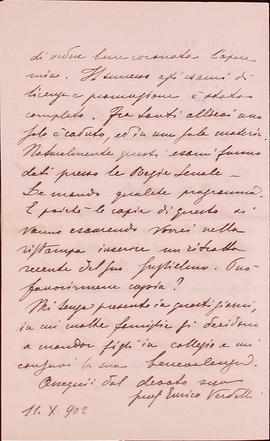 di veder bene coronata l'opera
mia. Il successo agli esami di
licenza e promozione è stato
completo. Fra tanti allievi uno
solo è caduto, ed in una sola materia.
Naturalmente questi esami furono
dati presso le Regie Scuole —
Le mando qualche programma.
E poiché le copie di questo si
vanno esaurendo vorrei nella
ristampa inserire un ritratto
recente del suo Guglielmo. Può
favorirmene copia?
Mi tenga presente in questi giorni,
in cui molte famiglie si decidono
a mandar figli in collegio e mi
conservi la sua benevolenza.
Ossequi dal devoto suo
prof Enrico
11. X. 902